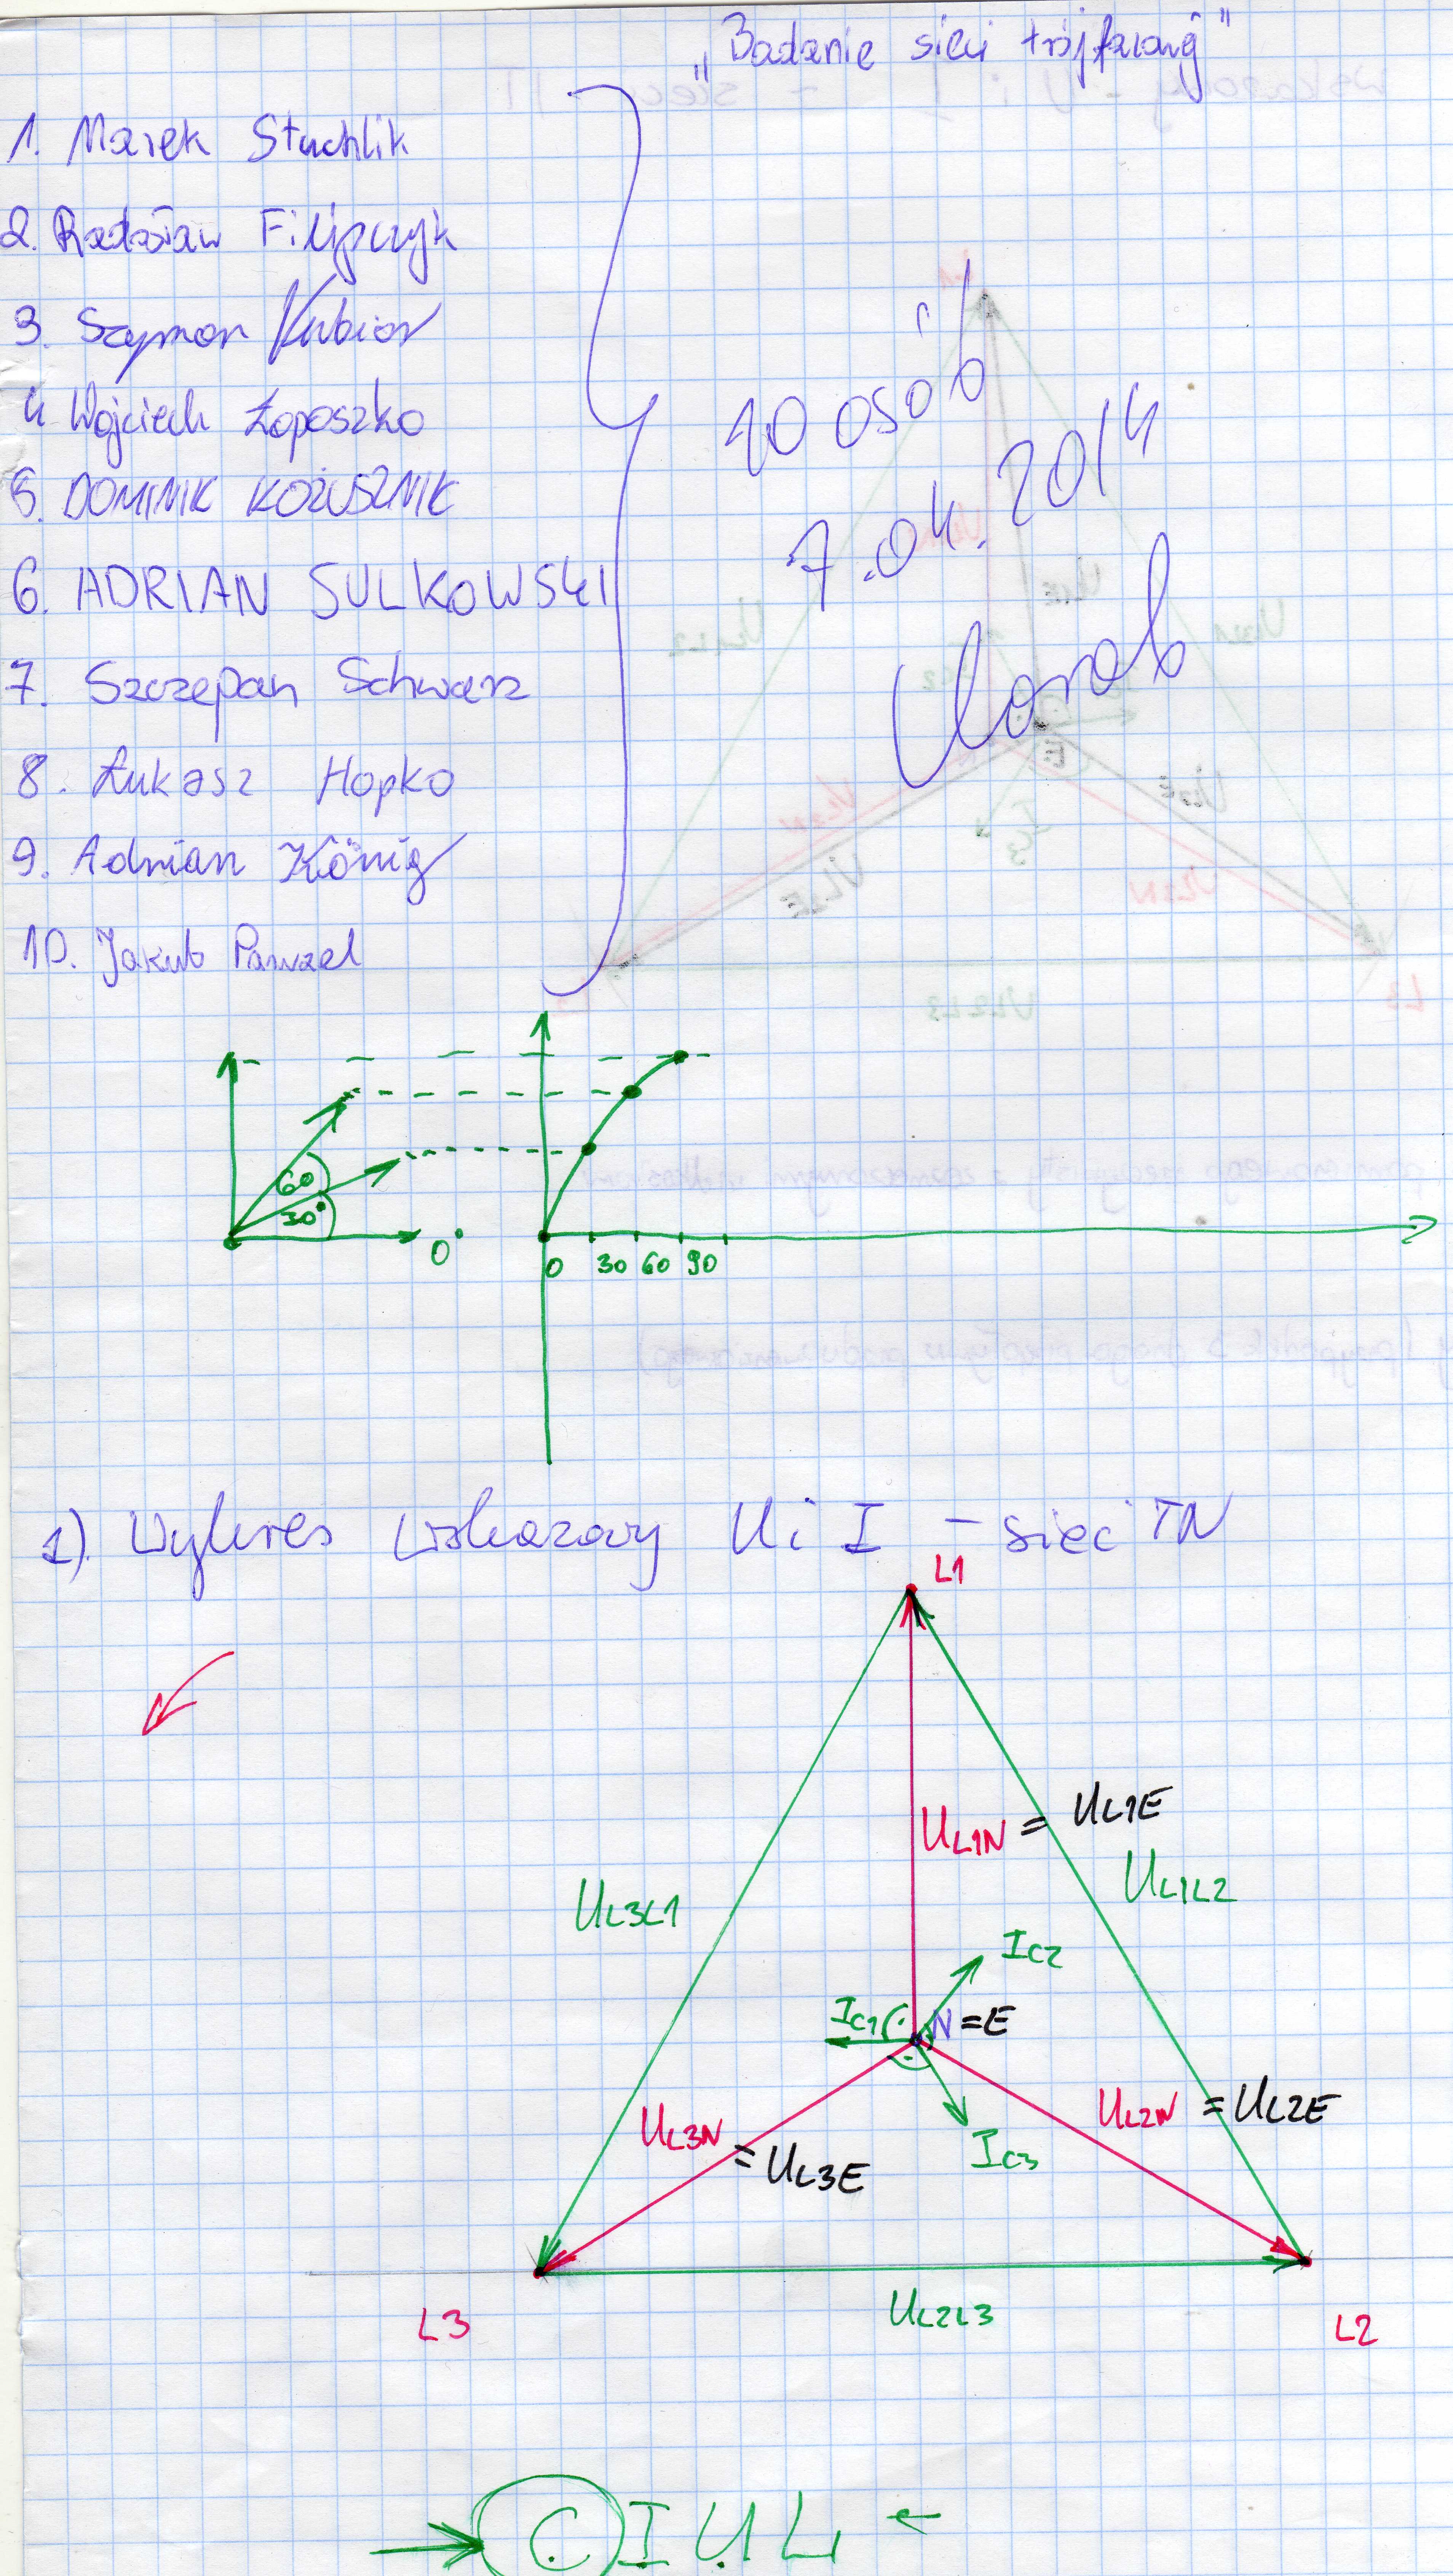 „Badanie sieci trójfazowej”
1. Marek Stuchlik
2. Radosław Filipczyk
3. Szymon
4. Wojciech Łoposzko
5. DOMINIK KOŻUSZNIK
6. ADRIAN SULKOWSKI
7. Szczepan Schwarz
8. Łukasz Hopko
9. Adrian König
10. Jakub
10 osób
7.04.2014
60
30°
0°
0 30 60 90
1) Wykres wskazowy U i I – sieć TN
L1
UL1N = UL1E
UL3L1
UL1L2
IC2
IC1
N=E
UL3N = UL3E
UL2N = UL2E
IC3
UL2L3
L3
L2
C I U L